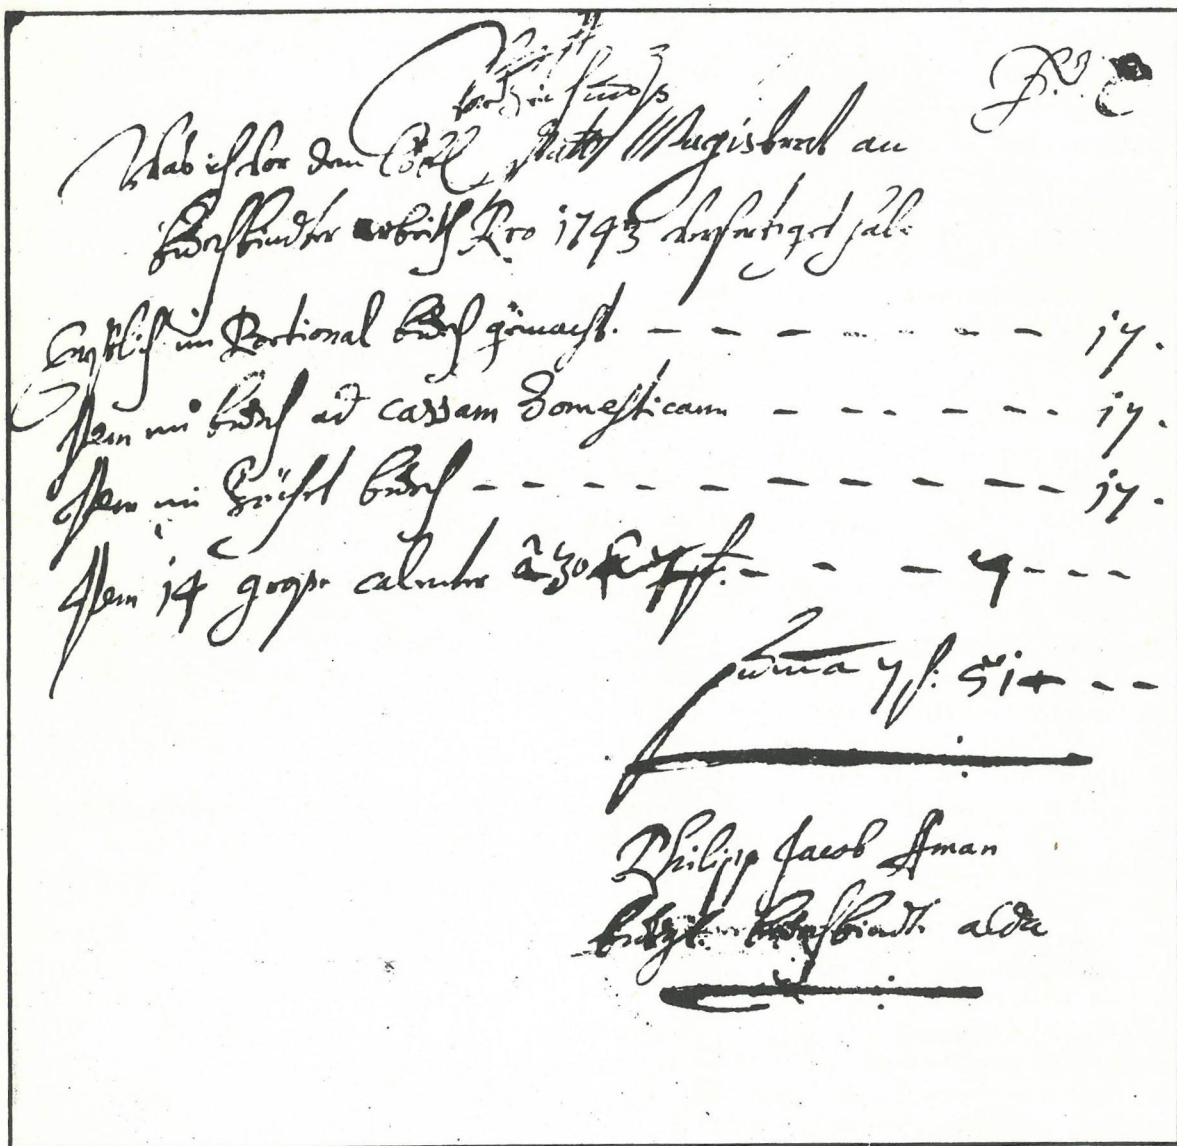 Verzeichnus
Was ich vor dem Löbl. Statt Magistrat an
buechbindter arbeith Pro 1743 verfertiget hab:
Erstlich ein Portional buech gemacht. — — — — — — — — 17.
Item ein buech ad cassam domesticam — — — — — — 17.
Item ein buech — — — — — — — — — — — 17.
Item 14 grosse calender â 30 — — — 7 - - -
Summa 7 f: 51 x - -
Philipp Jacob Aman
burgl. buechbindter alda